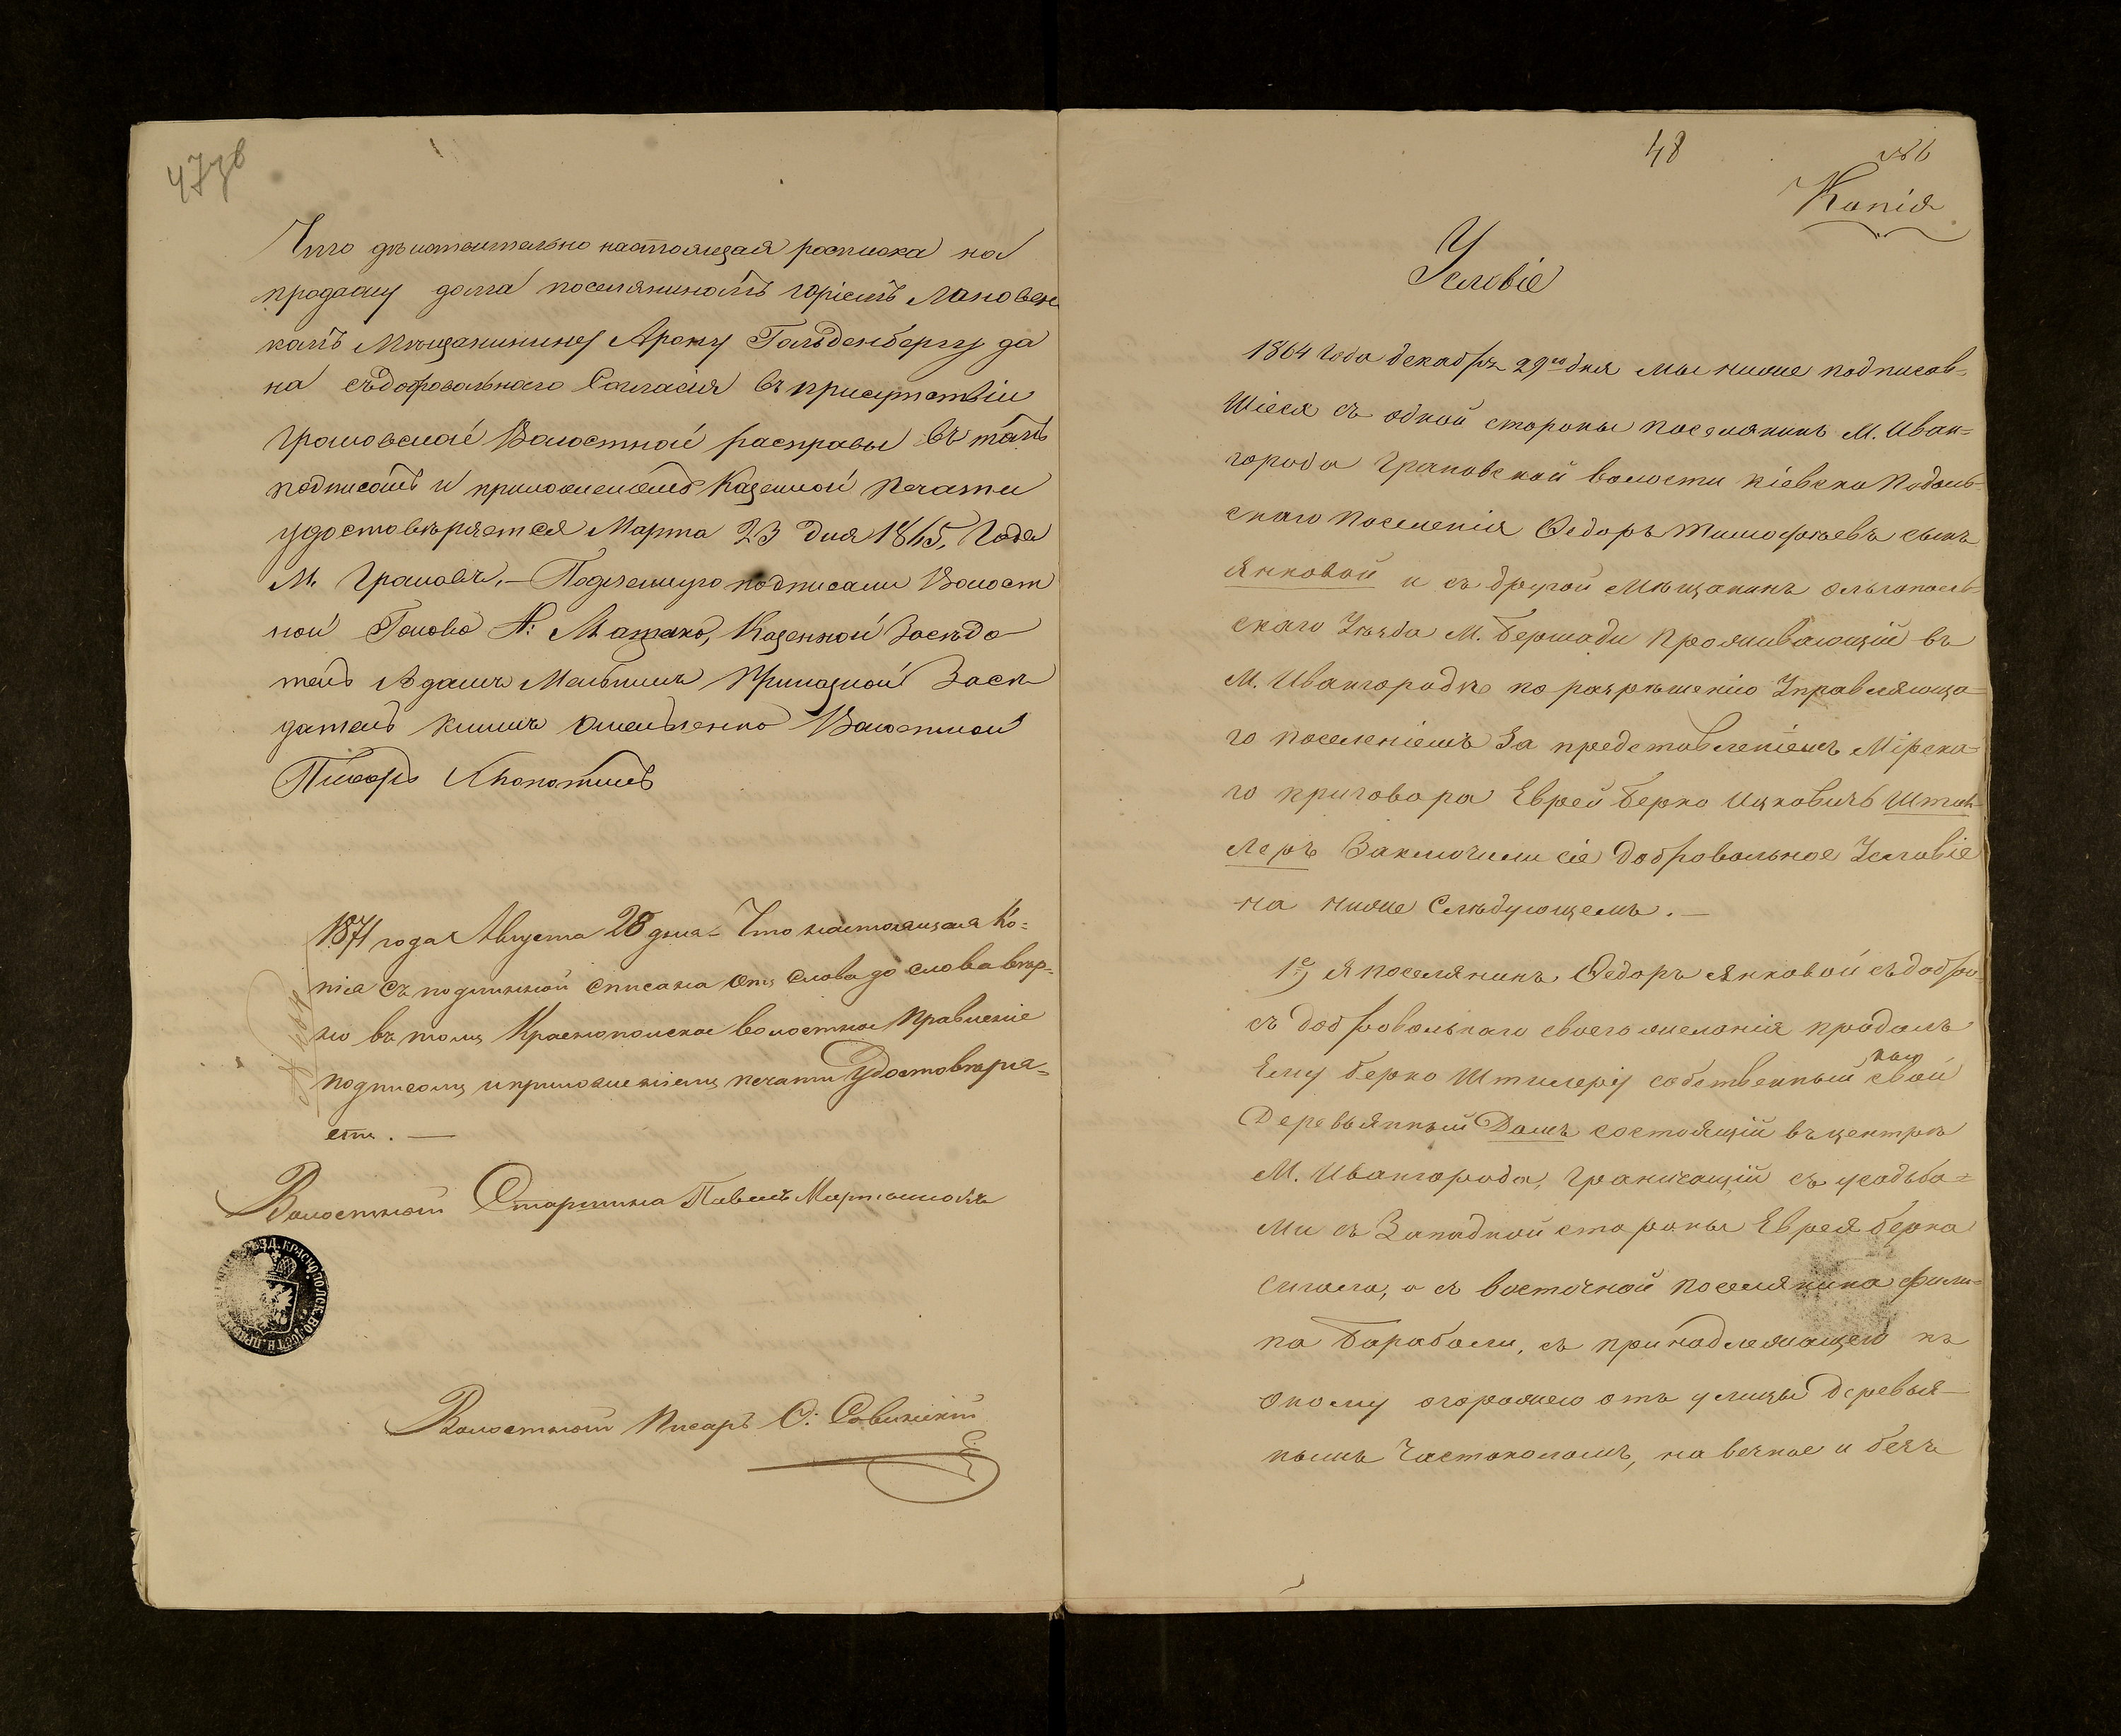 47зв
Что дѣйствительно настоящая росписка на
продажу дома поселяниномъ Горіемъ Лановен
камъ Мѣщанинину Арону Гольденбергу да
на съдобровольного Согласия въ присутствіи
Грановской Волостной расправы въ томъ
подписомъ и приложениемъ Казенной Печати
удостовѣряется Марта 23 Дня 1865, Года
М. Грановъ. — Подлемную подписали Волост
ной Голова А: Мазако, Казенной Засѣда
тель Адамъ Мельникъ Приказной Засѣ
датель Климъ Омельченко Волостной
Писарь
1871 года Августа 28 дня — Что настоящая Ко=
пія съ подлинной списана отъ слова до слова вѣр=
но въ томъ Краснопольское волостное Правленіе
подписомъ и приложеніемъ печати Удостовѣряе=
етъ. —
Волостной Старшина Павелъ Мартынюкъ
КРАСНОПОЛЬСК. ВОЛОСТН. ПРАВ
Волостной Писарь С: Савицкій
48
№ 6
Копія
Условіе
1864 Года декабря 29го дня мы ниже подписав=
Шіеся съ одной стороны поселянинъ М. Иван=
города Грановской волости Кіевско Подоль=
скаго Поселенія Ѳедоръ Тимофѣевъ сынъ
Янковой и съ другой Мѣщанинъ Ольгополь=
скаго Уѣзда М. Бершади Проживающій въ
М. Ивангородѣ по разрѣшенію Управляюща=
го поселеніемъ За представленіемъ Мірска=
го приговора Еврей Берко Ицковичъ Штив
леръ Заключили сіе Добровольное Условіе
на ниже Слѣдующемъ. —
1е, Я поселянинъ Ѳедоръ Янковой съ добро
съ добровольнаго своего желанія продалъ
Ему Берко Штилеру собственный свой
Деревьянный Домъ состоящій въ центрѣ
М. Ивангорода, Граничащій съ усадьба=
ми съ Западной стороны Еврея берка
Сигала, а съ восточной Поселянина Фили=
па Барабаги, съ принадлежащею къ
оному огорожею отъ улицы деревья—
нымъ Частоколомъ, на вечное и безъ